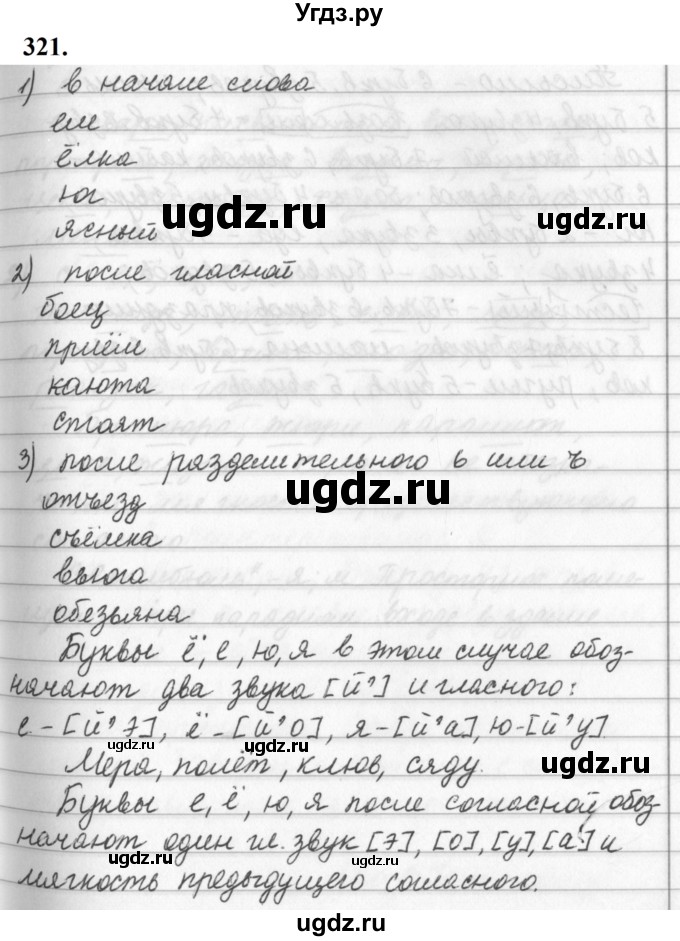 Угдз.ру
321.
1) в начале слова
ем
ёлка
юг
ugdz.ru
ясный
2) после гласной
боец
приём
каюта
стоят
3) после разделительного ь или ъ
ugdz.ru
отъезд
съёмка
вьюга
обезьяна
Буквы ё, е, ю, я в этом случае обоз-
начают два звука [й'] и гласного:
е - [й'э], ё - [й'о], я - [й'а], ю - [й'у]
ugdz.ru
Мера, полёт, клюв, сяду.
Буквы е, ё, ю, я после согласной обоз-
начают один гл. звук [э], [о], [у], [а] и
ugdz.ru ugdz.ru
мягкость предыдущего согласного.
ugdz.ru